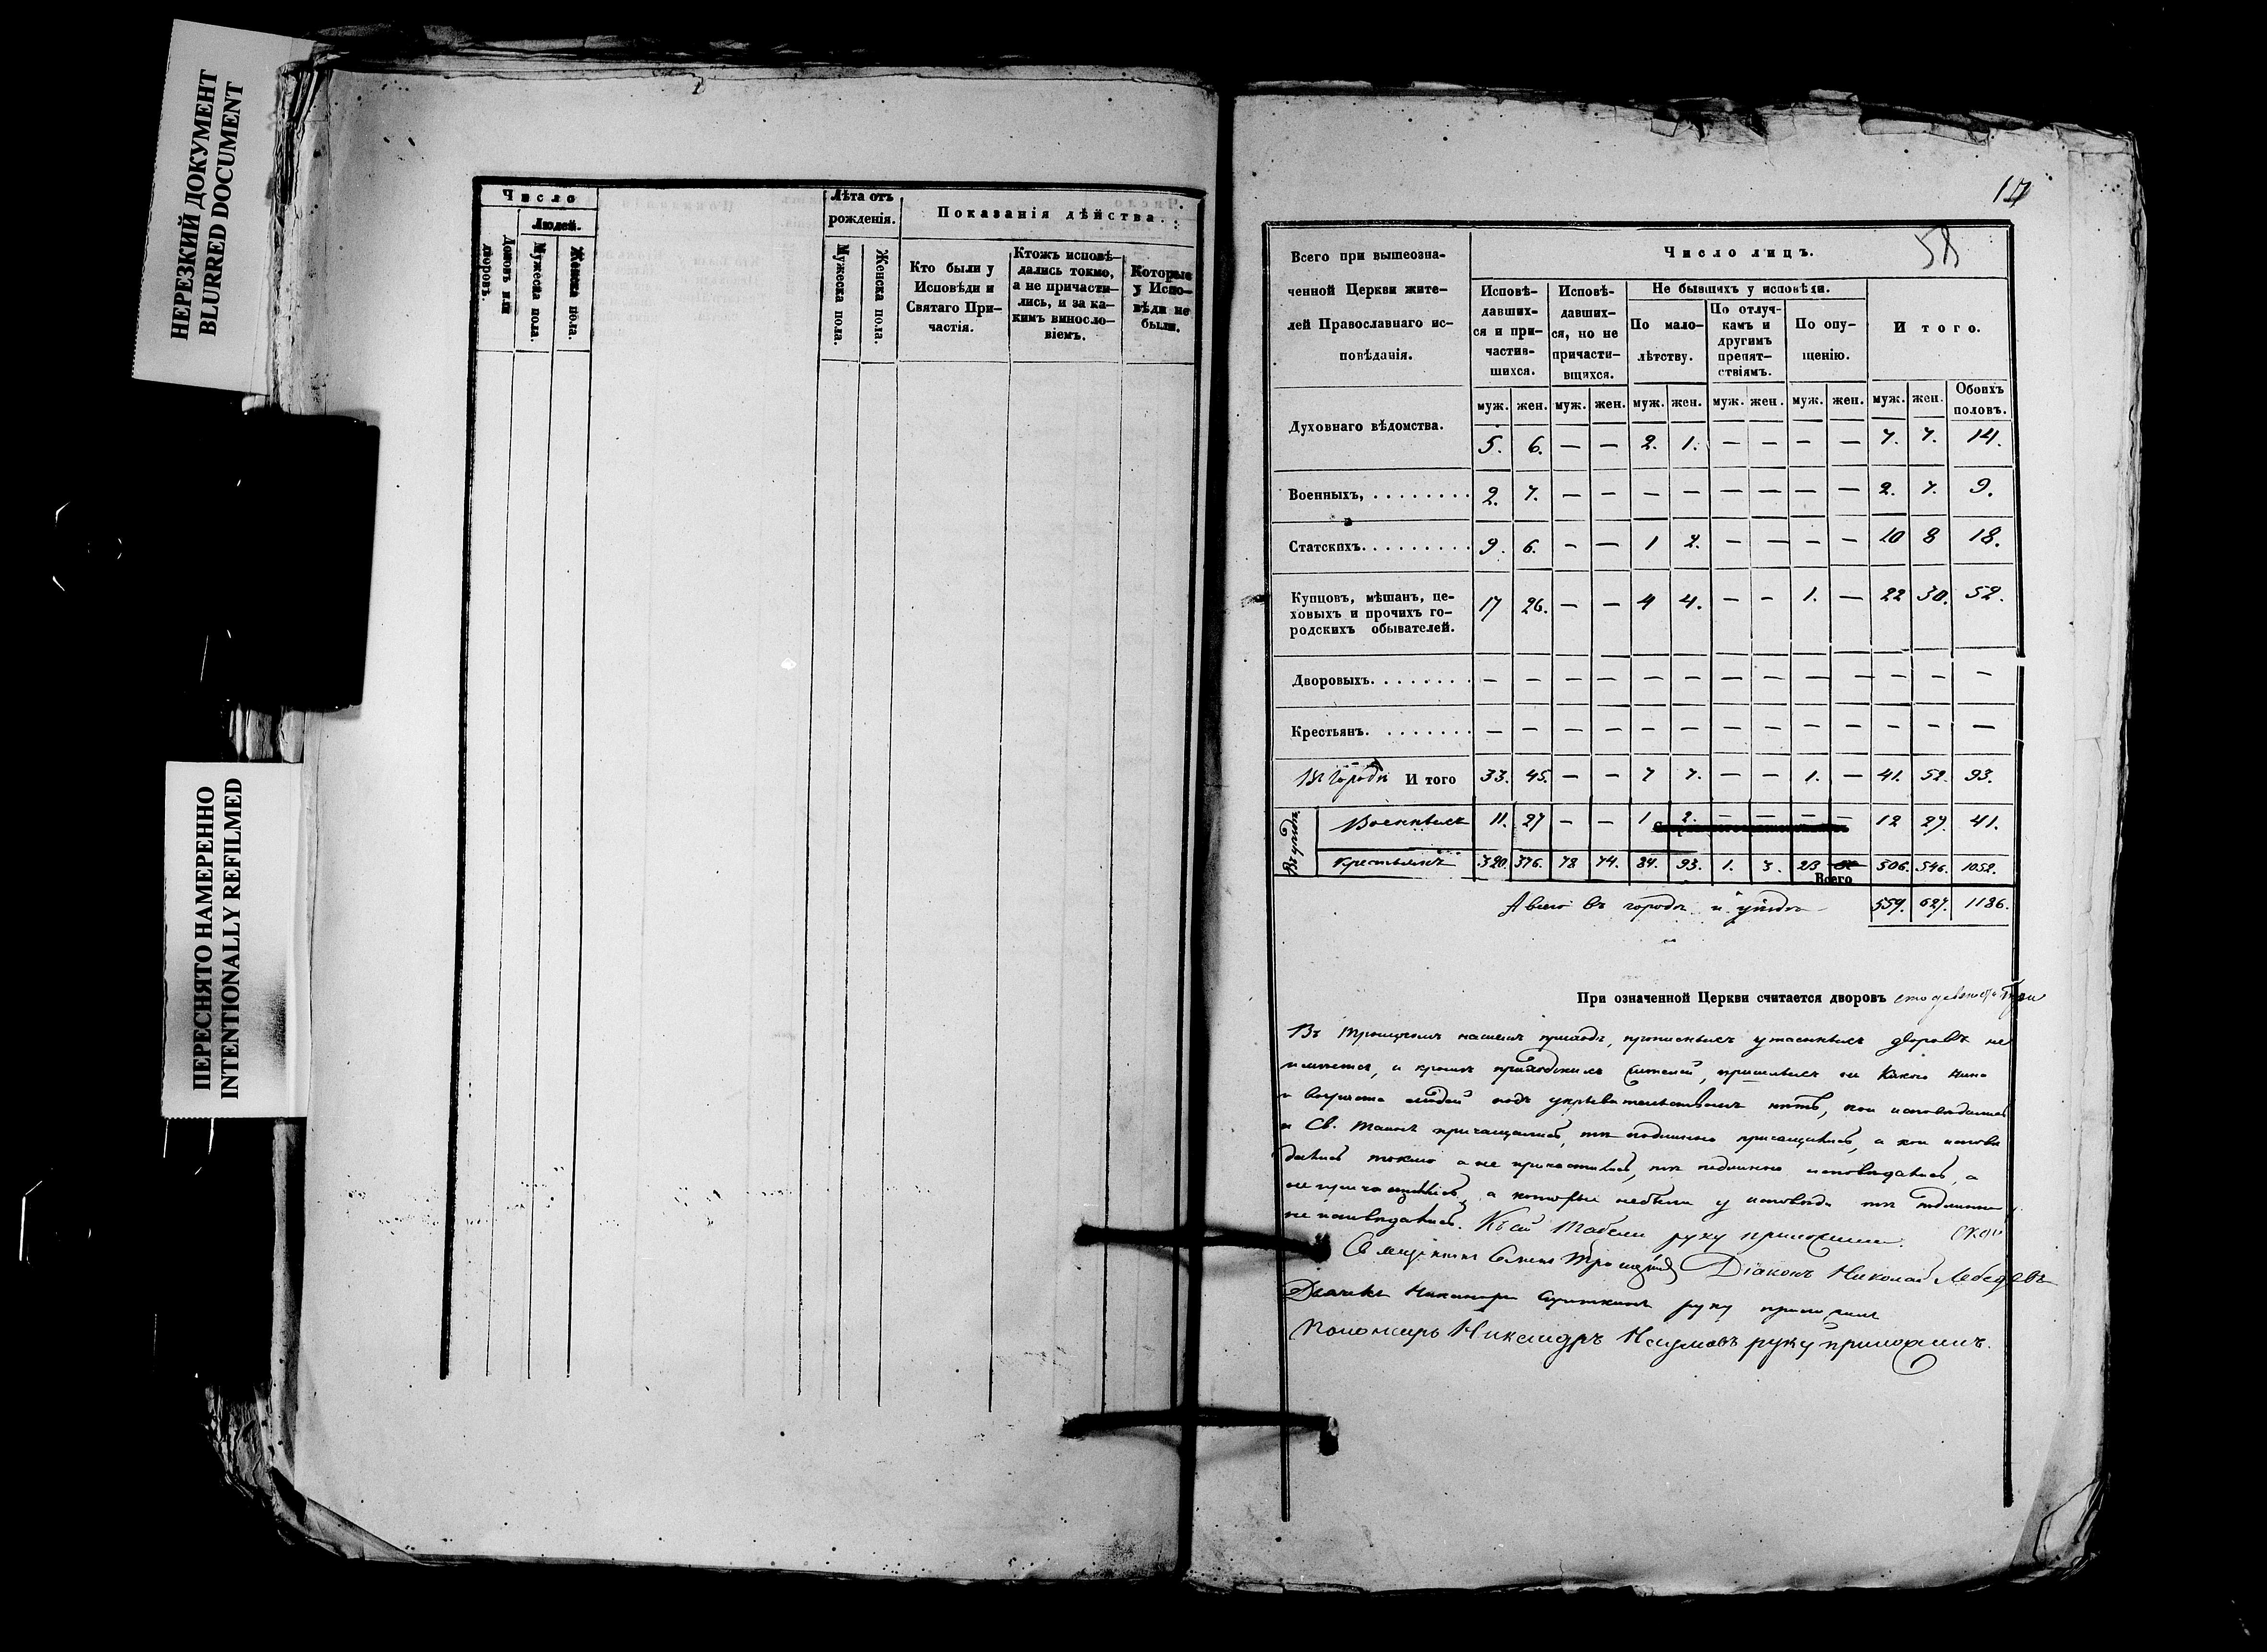 НЕРЕЗКИЙ ДОКУМЕНТ
BLURRED DOCUMENT
ПЕРЕСНЯТО НАМЕРЕННО
INTENTIONALLY REFILMED
Число
Людей.
Домовъ или дворовъ.
Мужеска пола.
Женска пола.
Лѣта отъ рожденія.
Мужеска пола.
Женска пола.
Показанія дѣйства.
Кто были у Исповѣди и Святаго Причастія.
Ктожъ исповѣ-
дались токмо,
а не причасти-
лись, и за ка-
кимъ винословіемъ.
Которые
у Испо-
вѣди не
были.
58
Всего при вышеозна-
ченной Церкви жите-
лей Православнаго ис-
повѣданія.
Число лицъ.
Исповѣ-
давших-
ся и при-
частив-
шихся.
Исповѣ-
давших-
ся, но не
причасти-
вщихся.
Не бывшихъ у исповѣди.
По мало-
лѣтству.
По отлуч-
камъ и
другимъ
препят-
ствіямъ.
По опу-
щенію.
Итого.
муж. жен. муж. жен. муж. жен. муж. жен. муж. жен. муж. жен. Обоихъ половъ.
Духовнаго вѣдомства. 5. 6. — — 2. 1. — — — — 7. 7. 14.
Военныхъ, . . . . . . . . 2. 7. — — — — — — — — 2. 7. 9.
Статскихъ. . . . . . . . . 9. 6. — — 1 2. — — — — 10 8 18.
Купцовъ, мѣшанъ, це-
ховыхъ и прочихъ го-
родскихъ обывателей. 17 26. — — 4 4. — — 1. — 22 30. 52.
Дворовыхъ. . . . . . . . — — — — — — — — — — — — —
Крестьянъ. . . . . . . . — — — — — — — — — — — — —
Въ городѣ И того 33. 45. — — 7 7. — — 1. — 41. 52. 93.
Въ уѣздѣ
Военныхъ 11. 27 — — 1 2. — — — — 12 29. 41.
Крестьянъ 320. 376. 78 74. 84. 93. 1. 3. 23 506. 546. 1052.
Всего
А всего въ городѣ и уѣздѣ 559. 627. 1186.
При означенной Церкви считается дворовъ сто девяносто три
Въ Троицкомъ нашемъ приходѣ, прописныхъ утаенныхъ дворовъ не
имѣется, и кромѣ приходскихъ жителей, пришлыхъ ни какого чина
и возраста людей подъ укрывательствомъ нѣтъ, кои исповѣдались
и Св. Таинъ причащались, тѣ подлинно причащались, а кои исповѣ
дались токмо а не причастились, тѣ подлинно исповѣдались, а
не причащались, а которые небыли у исповѣди тѣ подлинно
не исповѣдались. Къ сей Табели руку приложили.
Священникъ Троицкій Діаконъ Николай Лебедевъ
Дьячекъ руку приложилъ
Пономарь Никандръ Наумовъ руку приложилъ.